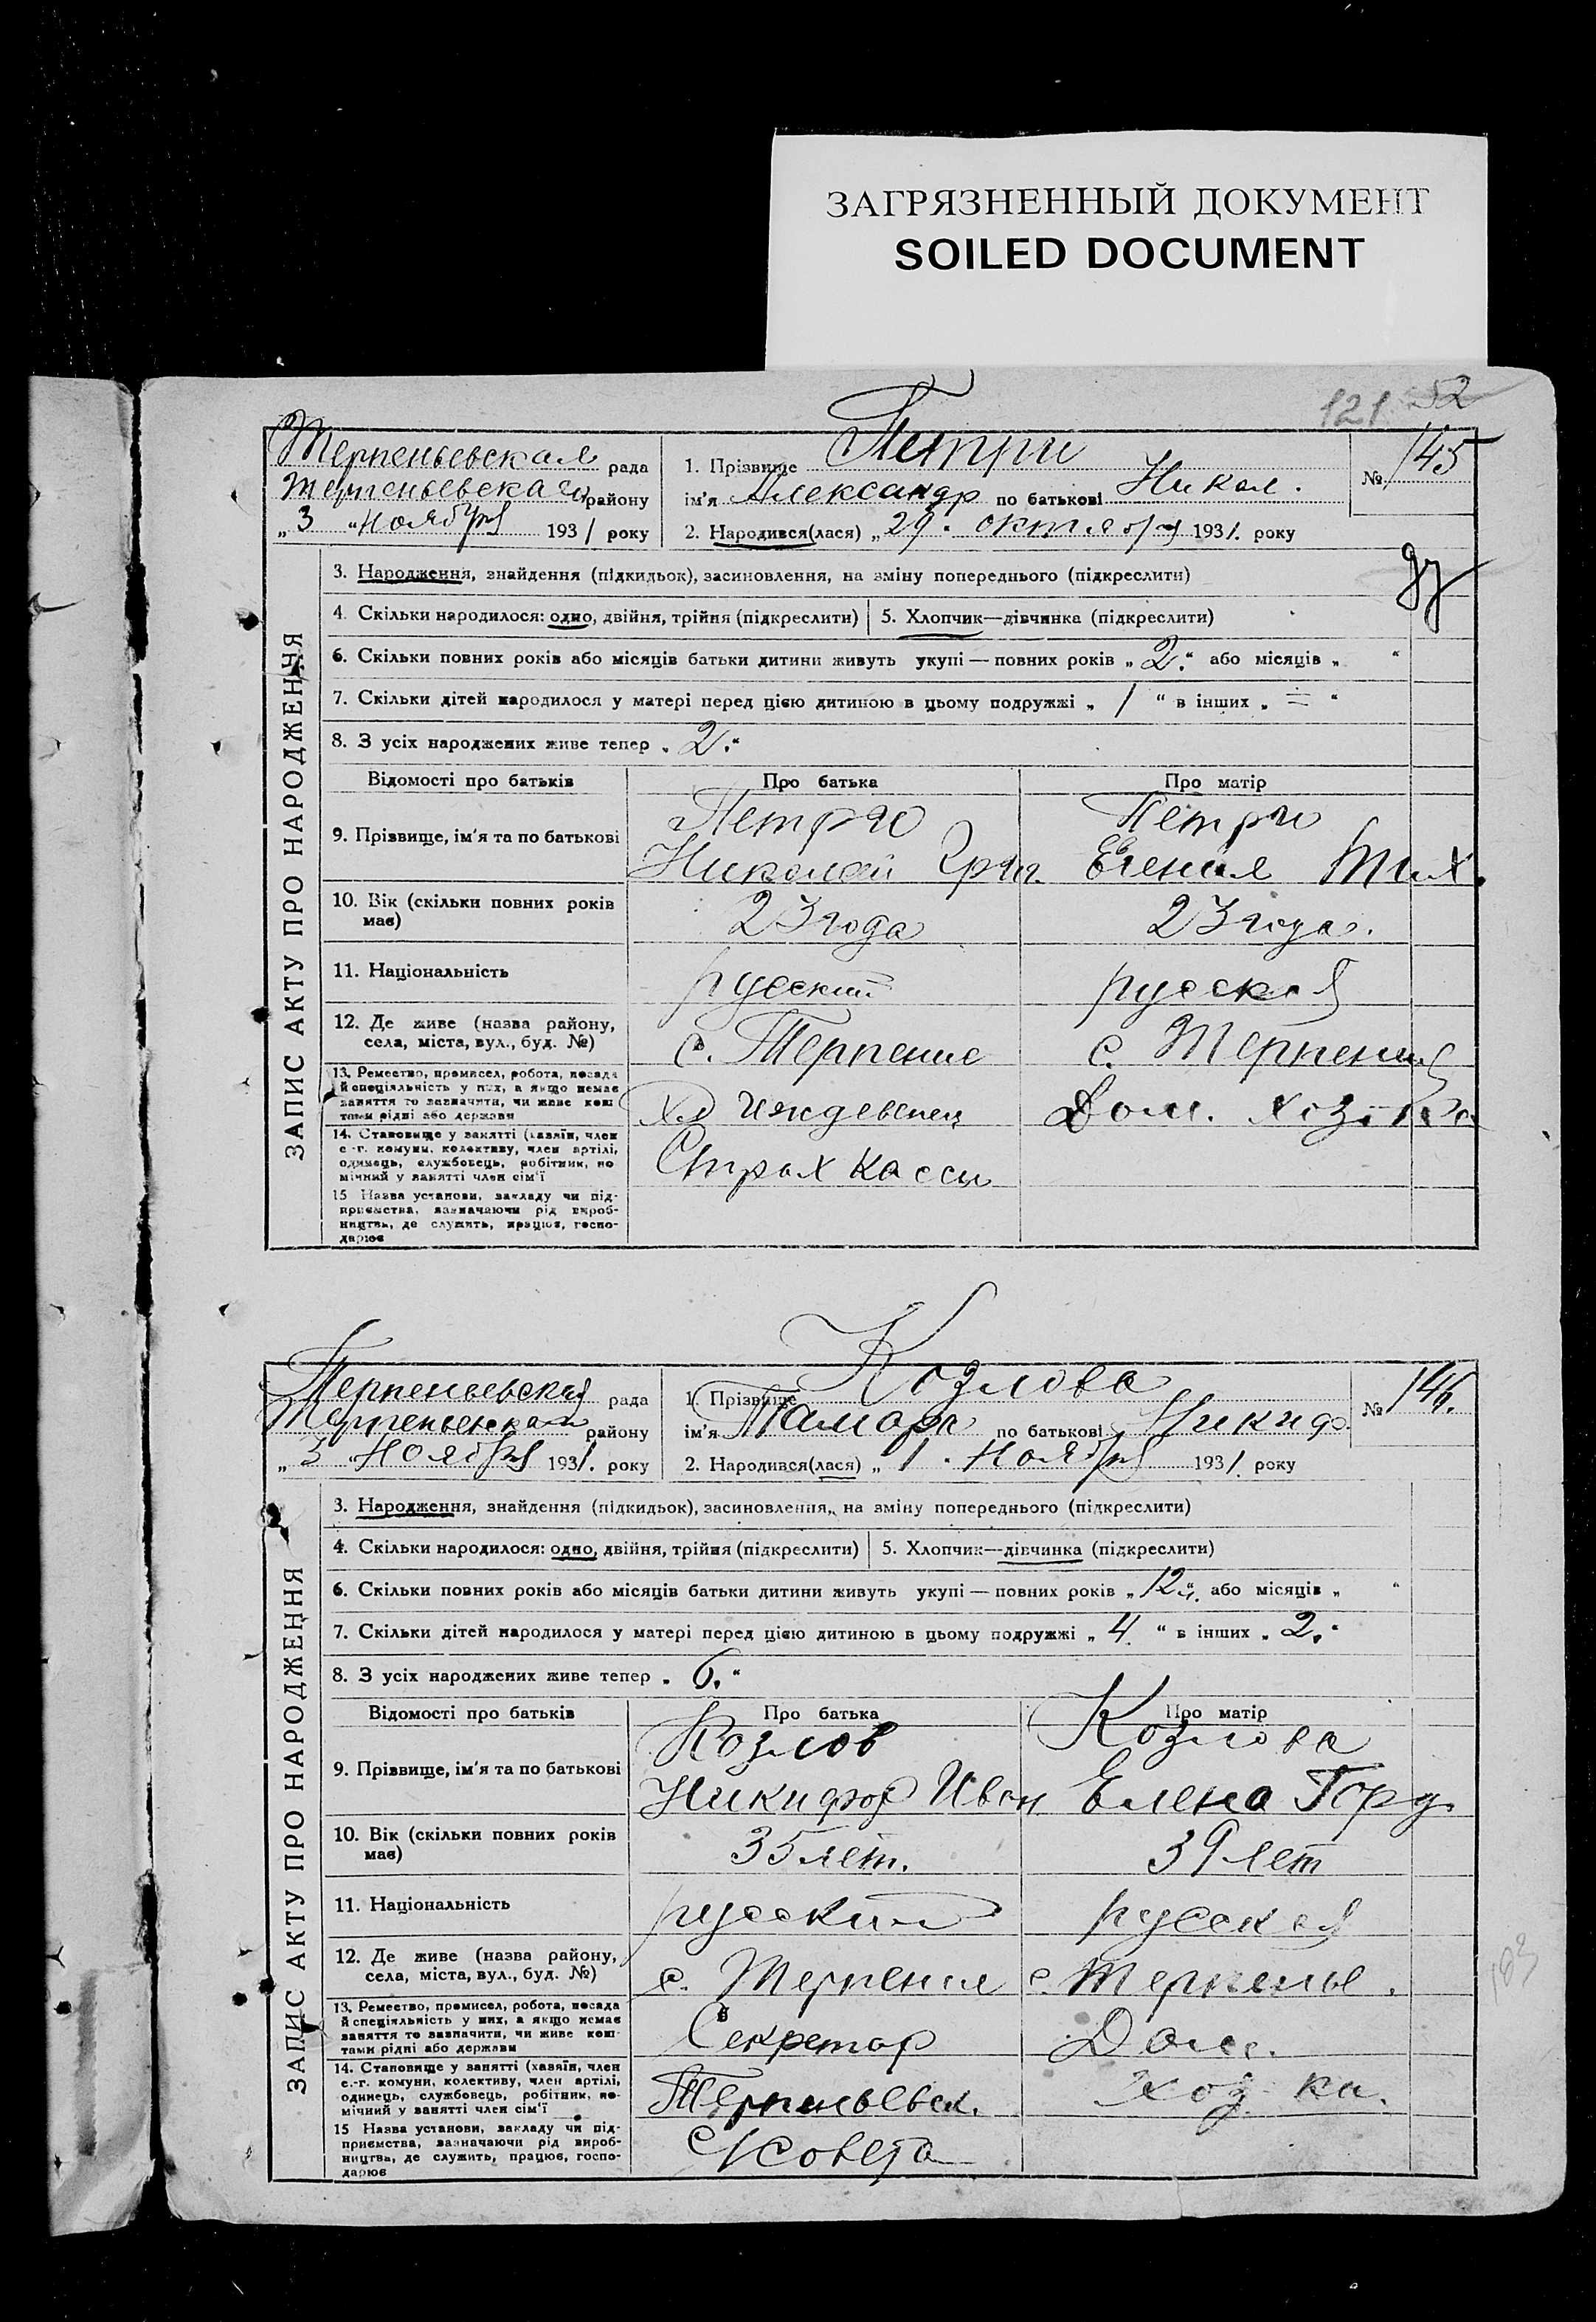 ЗАГРЯЗНЕННЫЙ ДОКУМЕНТ
SOILED DOCUMENT
121 52
ЗАПИС АКТУ ПРО НАРОДЖЕННЯ
Терпеньевская рада
района
„3 “ Ноября 1931 року
1. Прізвище Петри
№ 145
ім'я Александр по батькові Никол.
2. Народився(лася) „29. октября 1931. року
3. Народження, знайдення (підкидьок), засиновлення, на зміну попереднього (підкреслити)
4. Скільки народилося: одно, двійня, трійня (підкреслити)
5. Хлопчик—дівчинка (підкреслити)
6. Скільки повних років або місяців батьки дитини живуть укупі — повних років „ 2. “ або місяців „ “
7. Скільки дітей народилося у матері перед цією дитиною в цьому подружжі „ 1 “ в інших „ — “
8. З усіх народжених живе тепер „ 2. “
Відомості про батьків Про батька Про матір
9. Прізвище, ім'я та по батькові
Петри
Николай Григ.
Петри
Евгения Тих.
10. Вік (скільки повних років має)
23 года
23 года.
11. Національність
русский
русская
12. Де живе (назва району,
села, міста, вул., буд. №)
с. Терпение
с. Терпения
13. Ремество, промисел, робота, посада
й спеціяльність у них, а якщо немає
заняття то зазначити, чи живе кош
тами рідні або держави
иждевенец
Дом. хозяйка
14. Становище у занятті (хазяїн, член
с.-г. комуни, колективу, член артілі,
одинець, службовець, робітник, по
мічний у занятті член сім'ї
Страх Кассы
15 Назва установи, закладу чи під-
приємства, зазначаючи рід вироб-
ництва, де служить, працює, госпо-
дарює
ЗАПИС АКТУ ПРО НАРОДЖЕННЯ
Терпеньевская рада
району
„ 3 “ Ноября 1931. року
1. Прізвище Козлова
№ 146.
ім'я Тамара по батькові Никиф.
2. Народився(лася) „ 1. Ноября 1931. року
3. Народження, знайдення (підкидьок), засиновлення, на зміну попереднього (підкреслити)
4. Скільки народилося: одно, двійня, трійня (підкреслити)
5. Хлопчик—дівчинка (підкреслити)
6. Скільки повних років або місяців батьки дитини живуть укупі — повних років „ 12 “ або місяців „ “
7. Скільки дітей народилося у матері перед цією дитиною в цьому подружжі „ 4. “ в інших „ 2. “
8. З усіх народжених живе тепер „ 6. “
Відомості про батьків Про батька Про матір
9. Прізвище, ім'я та по батькові
Козлов
Никифор Иван
Козлова
Елена Горд.
10. Вік (скільки повних років
має)
35 лет.
39 лет
11. Національність
русский
русская
12. Де живе (назва району,
села, міста, вул., буд. №)
с. Терпение
с. Терпенье.
13. Ремество, промисел, робота, посада
й спеціяльність у них, а якщо немає
заняття то зазначити, чи живе кош
тами рідні або держави
Секретар
Дом.
14. Становище у занятті (хазяїн, член
с.-г. комуни, колективу, член артілі,
одинець, службовець, робітник, по-
мічний у занятті член сім'ї
Терпеньевск.
Хоз ка.
15 Назва установи, закладу чи під-
приємства, зазначаючи рід вироб-
ництва, де служить, працює, госпо-
дарює
с/совета
103